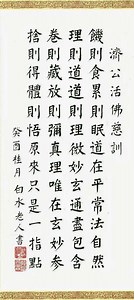 濟公活佛慈訓
饑則食累則眠道在平常法自然
理則道道則理微妙玄通盡包含
卷則藏放則彌真理唯在玄妙參
捨則得體則悟原來只是一指點
癸酉桂月白水老人書